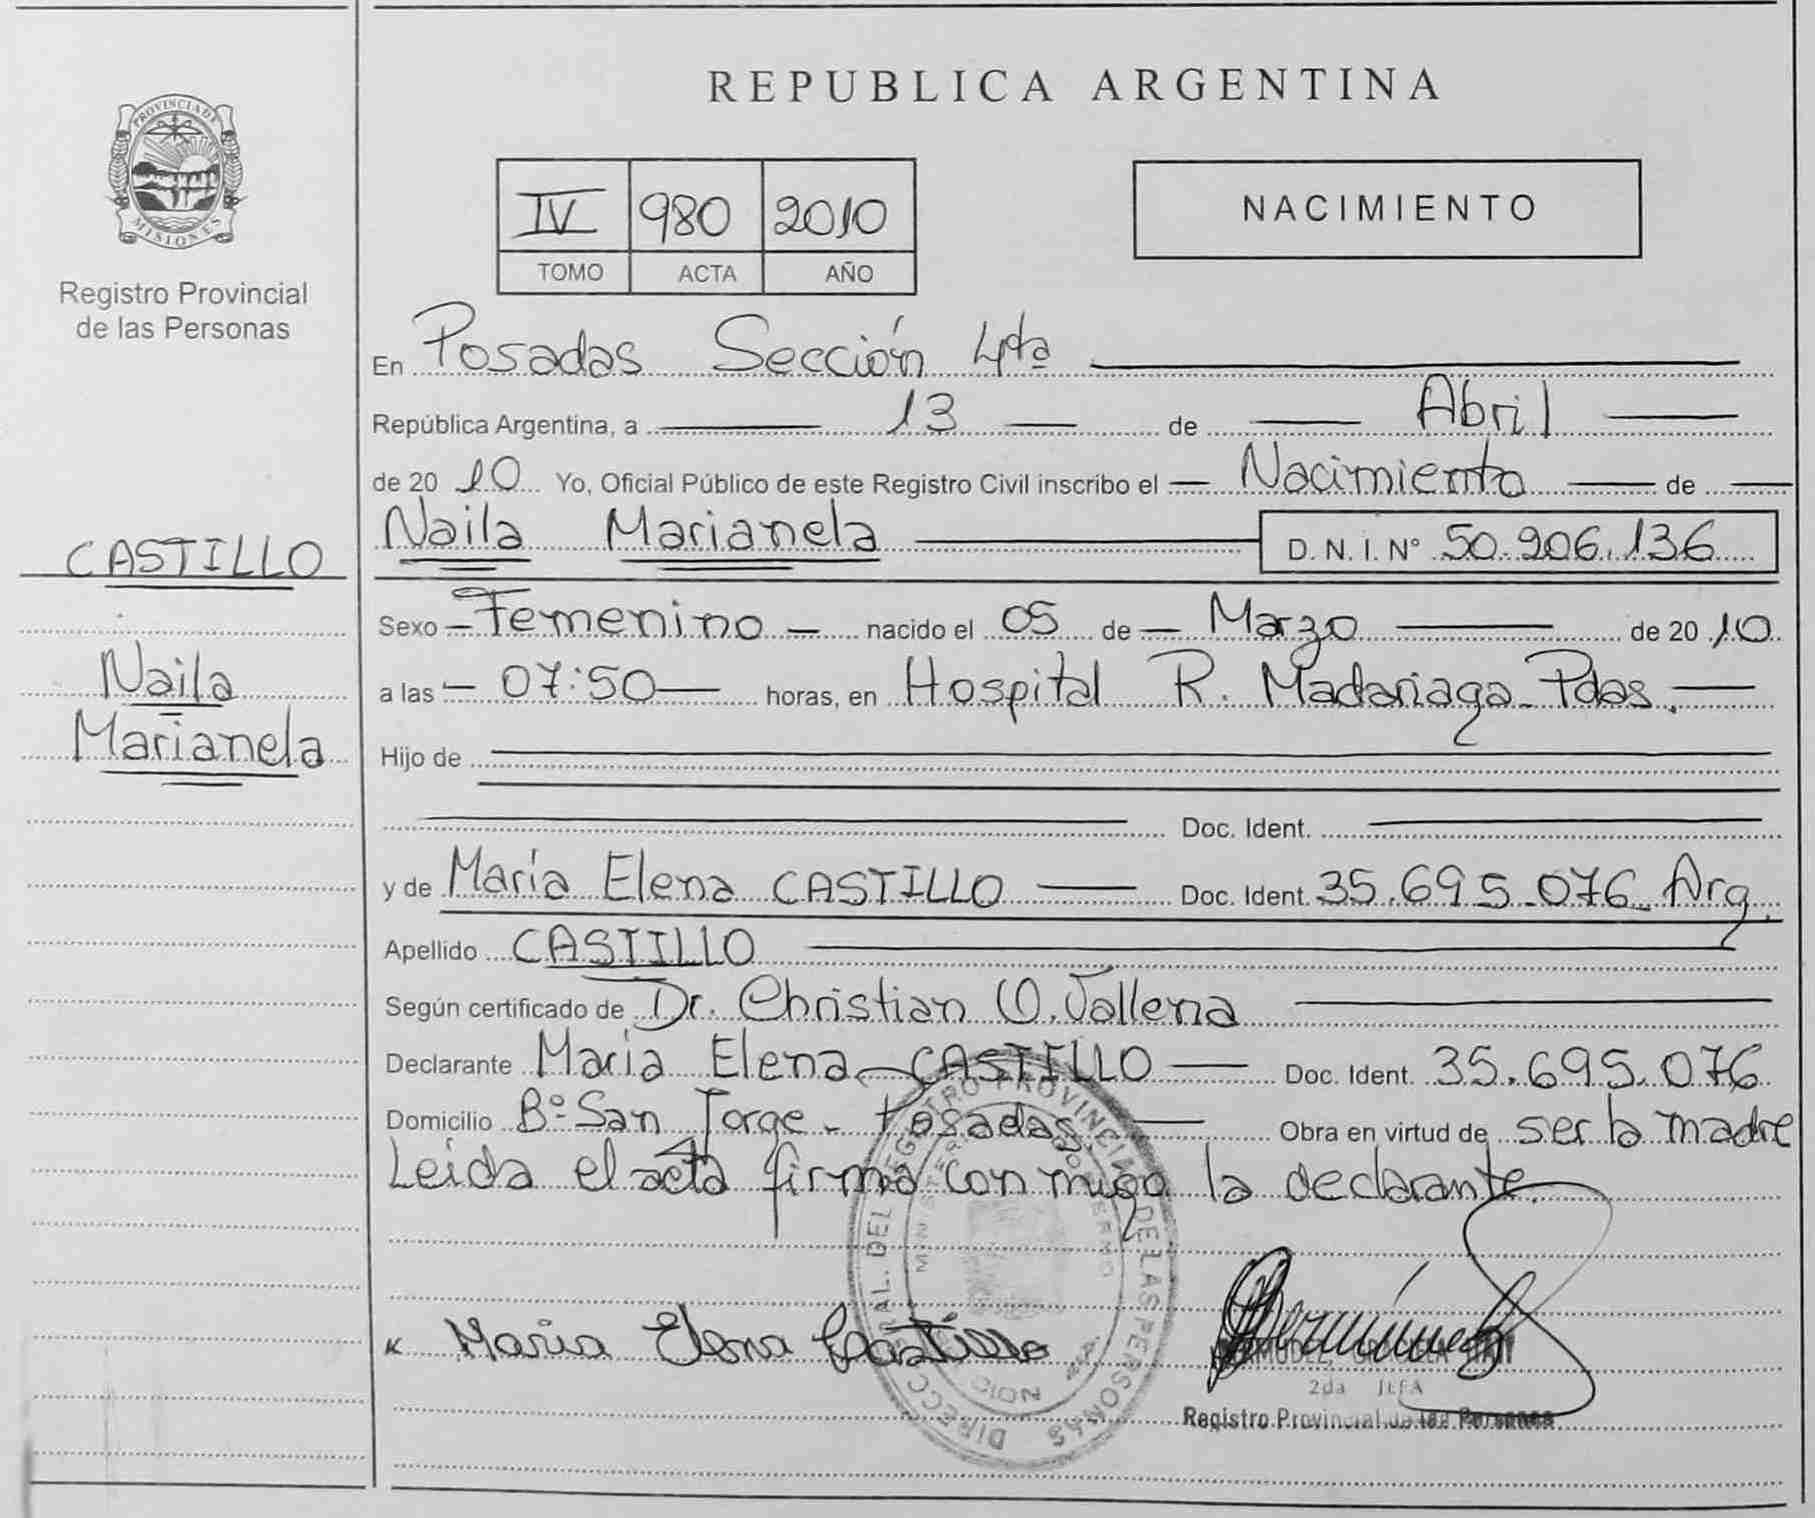 REPUBLICA ARGENTINA
PROVINCIA DE
MISIONES
Registro Provincial
de las Personas
IV 980 2010
TOMO ACTA AÑO
NACIMIENTO
En Posadas Sección 4ta
República Argentina, a 13 de Abril
de 2010 Yo, Oficial Público de este Registro Civil inscribo el Nacimiento de
CASTILLO
Naila Marianela D. N. I. Nº 50.906.136
Sexo Femenino nacido el 05 de Marzo de 2010
Naila
a las 07:50 horas, en Hospital R. Madariaga - Pdas.
Marianela
Hijo de
Doc. Ident.
y de María Elena CASTILLO Doc. Ident. 35.695.076 Arg.
Apellido CASTILLO
Según certificado de Dr. Christian O.
Declarante María Elena CASTILLO Doc. Ident. 35.695.076
Domicilio Bº San Jorge - Posadas Obra en virtud de ser la madre
Leida el acta firma conmigo la declarante.
DEL REGISTRO PROVINCIAL DE LAS PERSONAS
Maria Elena Castillo
2da JEFA
Registro Provincial de las Personas